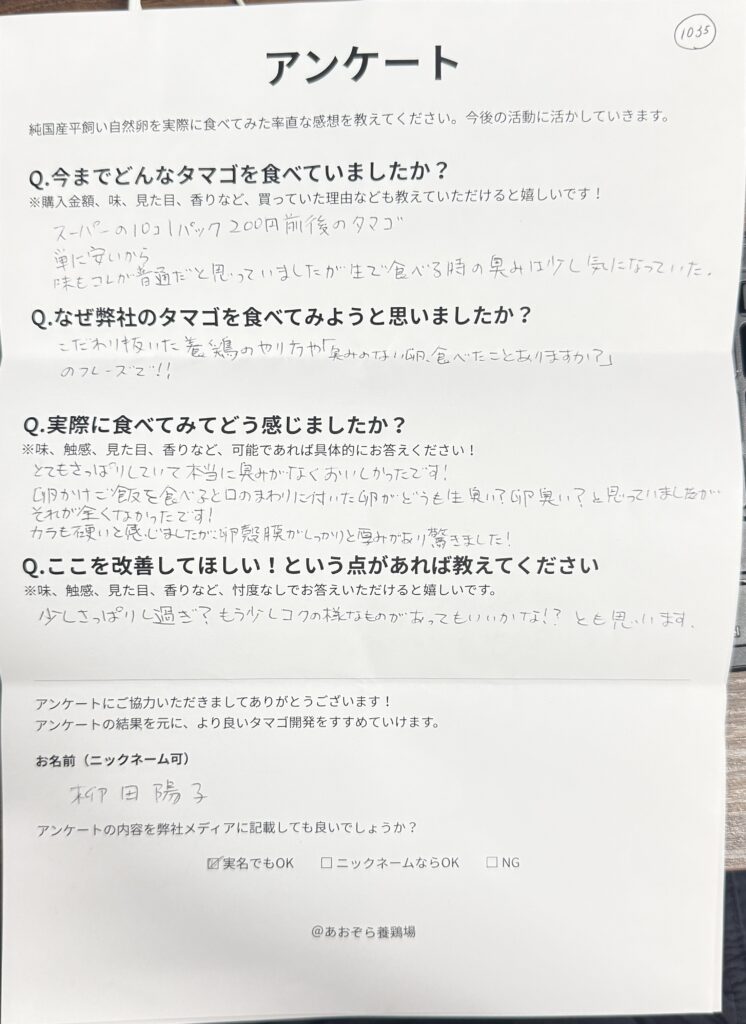 1035
アンケート
純国産平飼い自然卵を実際に食べてみた率直な感想を教えてください。今後の活動に活かしていきます。
Q.今までどんなタマゴを食べていましたか？
※購入金額、味、見た目、香りなど、買っていた理由なども教えていただけると嬉しいです！
スーパーの10コ1パック200円前後のタマゴ
単に安いから
味もコレが普通だと思っていましたが生で食べる時の臭みは少し気になっていた.
Q.なぜ弊社のタマゴを食べてみようと思いましたか？
こだわり抜いた養鶏のやり方や「臭みのない卵、食べたことありますか?」
のフレーズで!!
Q.実際に食べてみてどう感じましたか？
※味、触感、見た目、香りなど、可能であれば具体的にお答えください！
とてもさっぱりしていて本当に臭みがなくおいしかったです!
卵かけご飯を食べると口のまわりに付いた卵がどうも生臭い?卵臭い?と思っていましたが
それが全くなかったです!
カラも硬いと感じましたが卵殻膜がしっかりと厚みがあり驚きました!
Q.ここを改善してほしい！という点があれば教えてください
※味、触感、見た目、香りなど、忖度なしでお答えいただけると嬉しいです。
少しさっぱりし過ぎ?もう少しコクの様なものがあってもいいかな!?とも思います.
アンケートにご協力いただきましてありがとうございます！
アンケートの結果を元に、より良いタマゴ開発をすすめていけます。
お名前（ニックネーム可）
柳田陽子
アンケートの内容を弊社メディアに記載しても良いでしょうか？
☑実名でもOK ☐ニックネームならOK ☐NG
@あおぞら養鶏場